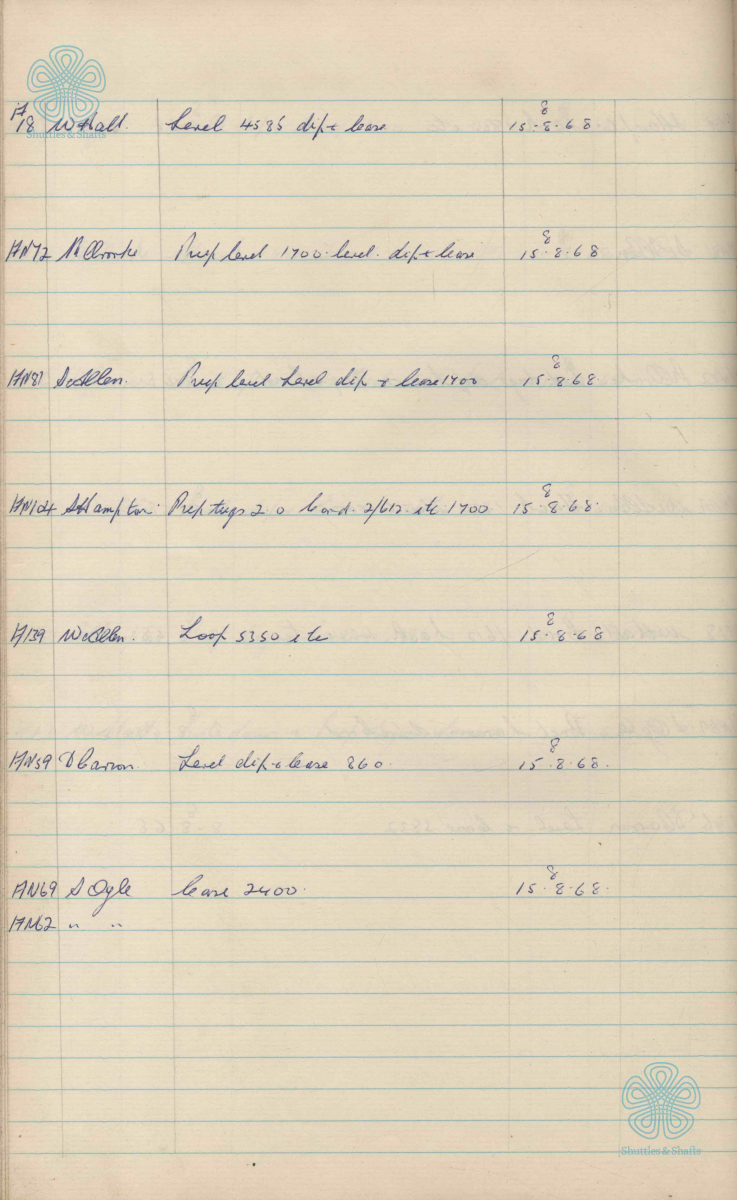 H
18 W Hall. Level 4585 dip + lease 8
15-8-68
Shuttles & Shafts
HN72 Prep level 1700 level. dip + lease 8
15.8.68
HN81 S Allen. Prep level Level dip + lease 1400 8
15.8.68
HN104 S Hampton. Prep tugs 2 0 2/612 etc 1700 8
15.8.68.
H139 W Allen. Loop 5350 etc 8
15.8.68
HN59 D Carron. Level dip + lease 860. 8
15.8.68.
HN69 S Ogle lease 2400. 8
15.8.68.
HN62 " "
Shuttles & Shafts